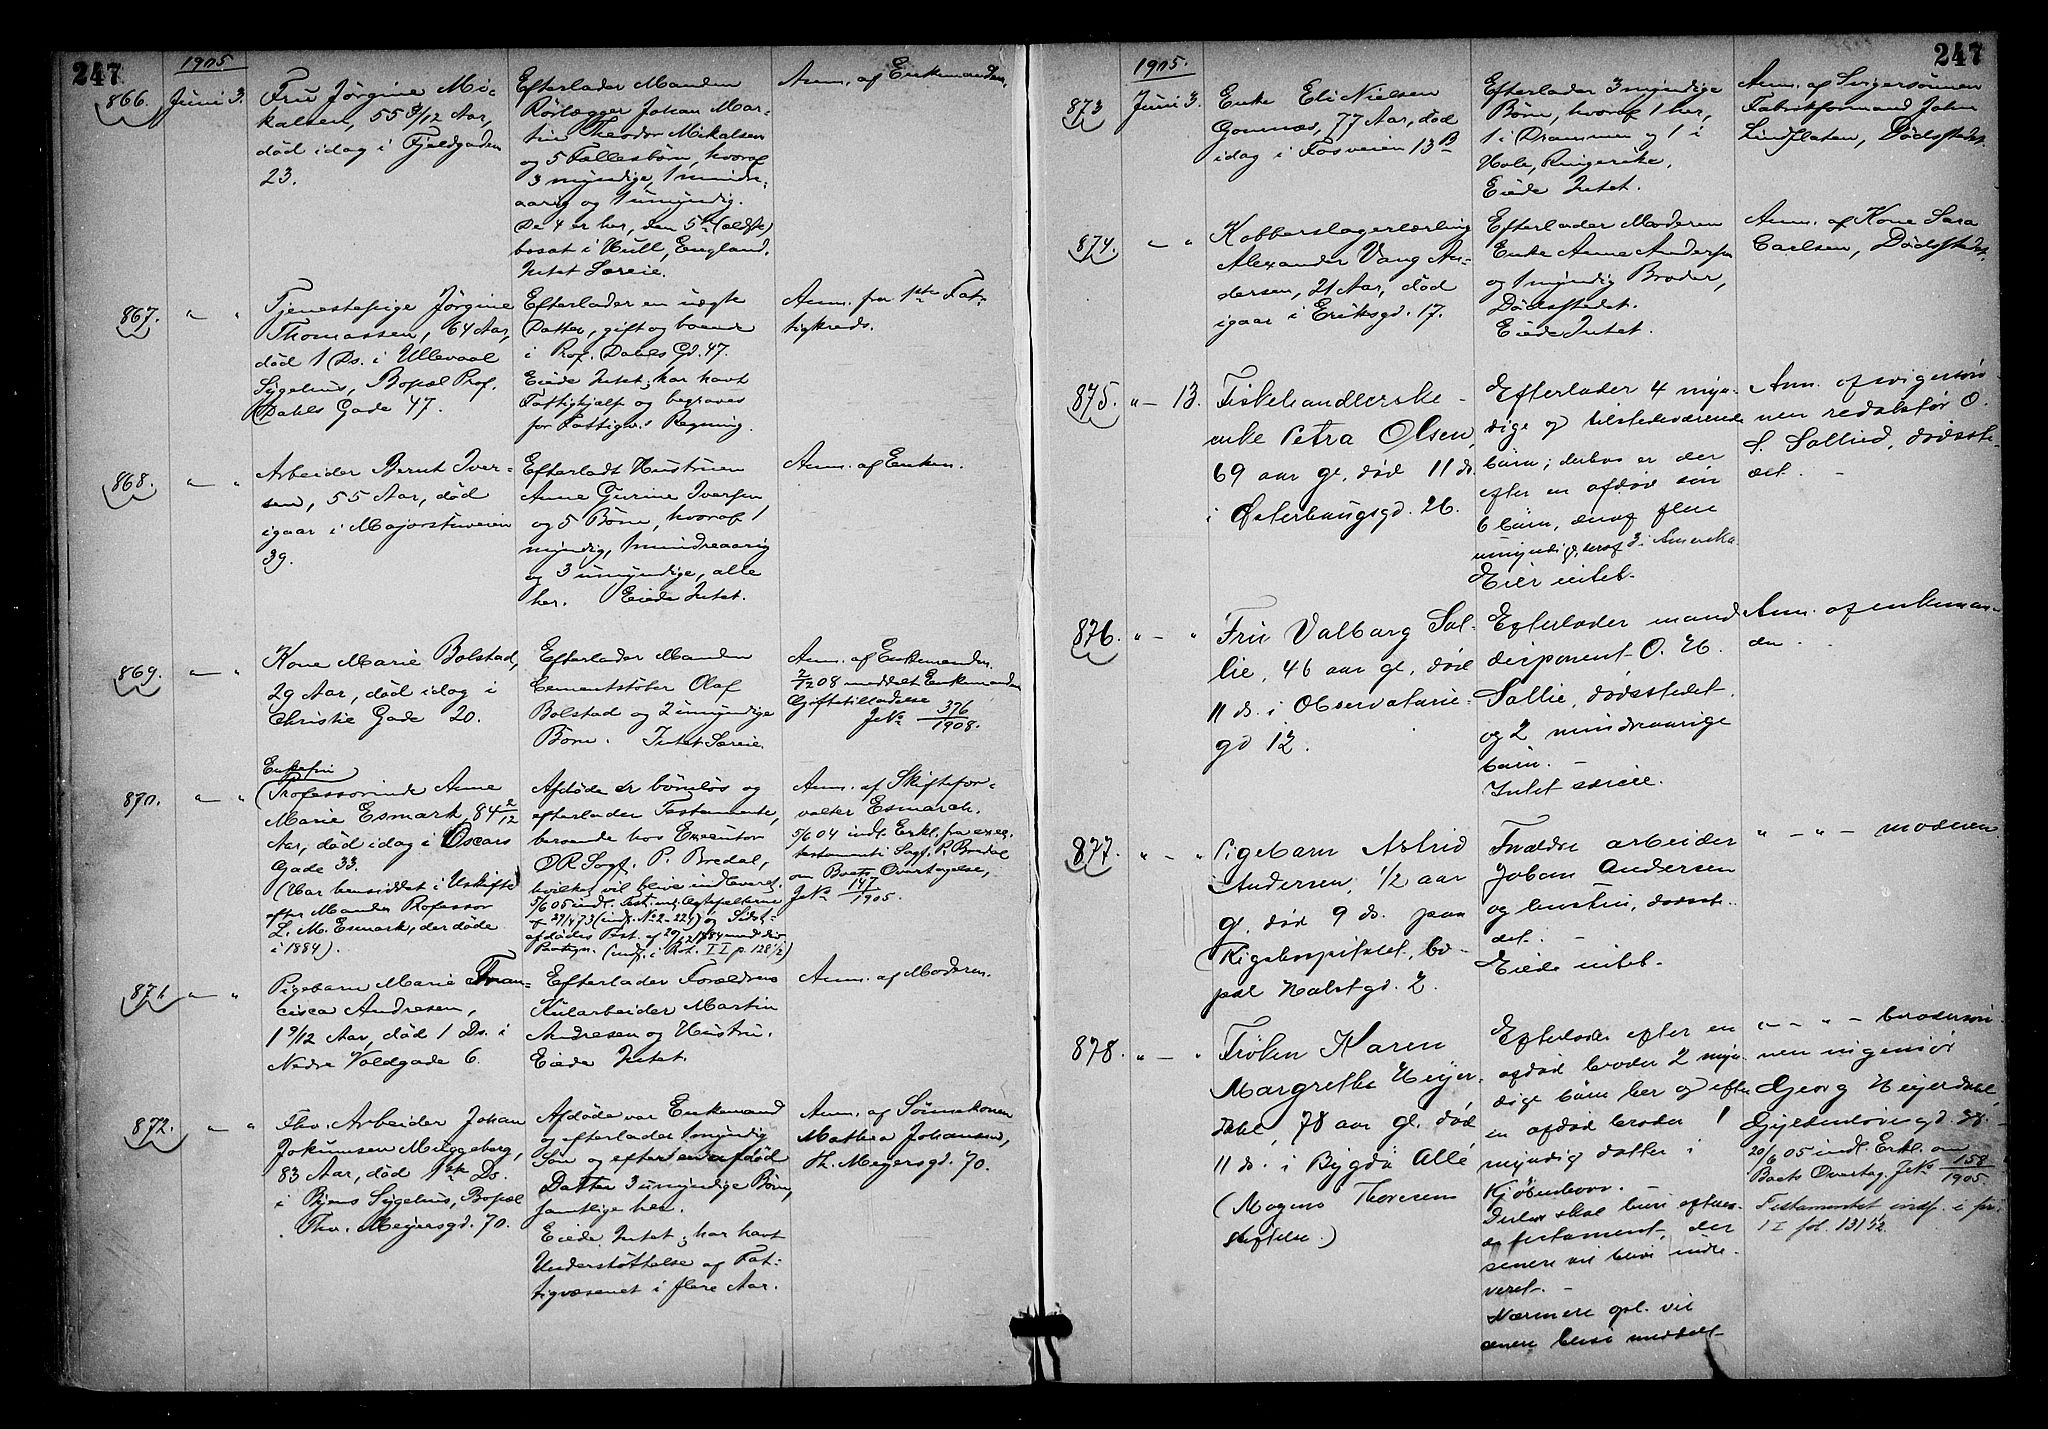 247
1905
866.
Juni 3.
Fru Jørgine Mi-
kalsen, 55 8/12 Aar,
død idag i Fjeldgaden
23.
Efterlader Manden
Rørlægger Johan Mar-
tin Theodor Mikalsen
og 5 Fællesbørn, hvoraf
3 myndige, 1 mindre-
aarig og 1 umyndig.
De 4 er her, den 5te (ældste)
bosat i Hull, England.
Intet Særeie.
Anm. af Enkemanden.
867.
" — "
Tjenestepige Jørgine
Thomassen, 64 Aar,
død 1 Ds. i Ullevaal
Sygehus, Bopæl Prof.
Dahls Gade 47.
Efterlader en uægte
Datter, gift og boende
i Prof. Dahls Gd. 47.
Eiede Intet, har havt
Fattighjælp og begraves
for Fattigv.s Regning.
Anm. fra 1ste Fat-
tigkreds.
868.
" — "
Arbeider Bernt Iver-
sen, 55 Aar, død
igaar i Majorstuveien
39.
Efterladt Hustruen
Anne Gurine Iversen
og 5 Børn, hvoraf 1
myndig, 1 mindreaarig
og 3 umyndige, alle
her. Eiede Intet.
Anm. af Enken.
869.
" — "
Kone Marie Bolstad,
29 Aar, død idag i
Christie Gade 20.
Efterlader Manden
Cementstøber Olaf
Bolstad og 2 umyndige
Børn. Intet Særeie.
Anm. af Enkemanden.
2/12 08 meddelt Enkemanden
Giftetilladelse
JNo 376/1908.
870.
" — "
Enkefru
Professorinde Anne
Marie Esmark, 84 2/12
Aar, død idag i Oscars
Gade 33.
(Har hensiddet i Uskifte
efter Manden Professor
L. M. Esmark, der døde
i 1884).
Afdøde er børnløs og
efterlader Testamente,
beroende hos Executor
OR Sagf. P. Bredal,
hvilket vil blive indleveret.
5/6 05 indl. Test. ml. Ægtefællerne
af 29/4 73 (indf. No 2 - 224) og Sidst-
afdødes Test. af 29/12 1884 med div.
Paategn. (indf. i Prot. II p. 128 1/2)
Anm. af Skiftefor-
valter Esmarch.
5/6 04 indl. Erkl. fra exec.
testamenti Sagf. P. Bredal
om Boets Overtagelse,
JNo 147/1905.
871.
" — "
Pigebarn Marie Fran-
cisca Andresen,
1 9/12 Aar, død 1 Ds. i
Nedre Voldgade 6.
Efterlader Forældrene
Kularbeider Martin
Andresen og Hustru.
Eiede Intet.
Anm. af Moderen.
872.
" — "
Fhv. Arbeider Johan
Jokumsen Muggeberg,
83 Aar, død 1ste Ds.
i Byens Sygehus, Bopæl
Thv. Meyersgd. 70.
Afdøde var Enkemand
og efterlader 1 myndig
Søn og efter en afdød
Datter 3 umyndige Børn,
samtlige her.
Eiede Intet, har havt
Understøttelse af Fat-
tigvæsenet i flere Aar.
Anm. af Sønnekonen
Mathea Johansen,
Th. Meyersgd. 70.
247
1905.
873
Juni 3.
Enke Eli Nielsen
Gomnæs, 77 Aar, død
idag i Fosveien 13 B
Efterlader 3 myndige
Børn, hvoraf 1 her,
1 i Drammen og 1 i
Hole, Ringerike.
Eiede Intet.
Anm. af Svigersønnen
Fabrikformand John
Lindflaten, Dødsstedet.
874.
— "
Kobberslagerlærling
Alexander Vang An-
dersen, 21 Aar, død
igaar i Eriksgd. 17.
Efterlader Moderen
Enke Anne Andersen
og 1 myndig Broder,
Dødsstedet.
Eiede Intet.
Anm. af Kone Sara
Carlsen, Dødsstedet.
875.
" — 13.
Fiskehandlerske -
enke Petra Olsen,
69 aar gl. død 11 ds.
i Østerhaugsgd. 26.
Efterlader 4 myn-
dige og tilstedeværende
børn; derhos er der
efter en afdød søn
6 børn, deraf flere
umyndige, deraf 3 i Amerika.
Eier intet.
Anm. af svigersøn-
nen redaktør O.
S. Sollied, dødsste-
det. -
876.
" — "
Fru Valborg Sol-
lie, 46 aar gl. død
11 ds. i Observatorie-
gd 12.
Efterlader mand
disponent O. H.
Sollie, dødsstedet
og 2 mindreaarige
børn. -
Intet særeie.
Anm. af enkeman-
den.
877.
" — "
Pigebarn Astrid
Andersen, 1/2 aar
gl. død 9 ds. paa
Rigshospitalet, bo-
pæl Holstgd. 2.
Forældre arbeider
Johan Andersen
og hustru, dødsste-
det. -
Eiede intet.
" — " — moderen
878.
" — "
Frøken Karen
Margrethe Heyer-
dahl, 78 aar gl. død
11 ds. i Bygdø Allé
(Mogens Thoresens
stiftelse.)
Efterlader efter en
afdød broder 2 myn-
dige børn her og efter
en afdød broder 1
myndig datter i
Kjøbenhavn. -
Derhos skal være efterla-
dt testament, der
senere vil blive indle-
veret. -
Nærmere opl. vil
senere blive meddelt
" — " — brodersøn-
nen ingeniør
Georg Heyerdahl,
Gyldenløvesgd. 38. -
20/6 05 indl. Erkl. om
Boets Overtag. JNo 158/1905
Testamentet indf. i pr.
1 I fol. 131 1/2